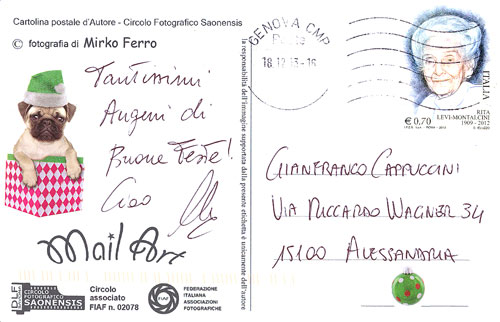 Cartolina postale d'Autore - Circolo Fotografico Saonensis
© fotografia di Mirko Ferro
Tantissimi
Auguri di
Buone Feste!
Ciao
Mail Art
DLF
CIRCOLO
FOTOGRAFICO
SAONENSIS
Circolo
associato
FIAF n. 02078
FIAF
FEDERAZIONE
ITALIANA
ASSOCIAZIONI
FOTOGRAFICHE
la responsabilità dell'immagine supportata dalla presente etichetta è unicamente dell'autore
GENOVA CMP
Poste
18.12.13-16
ITALIA
RITA
LEVI-MONTALCINI
1909-2012
€ 0,70
GIANFRANCO CAPPUCCINI
VIA RICCARDO WAGNER 34
15100 ALESSANDRIA